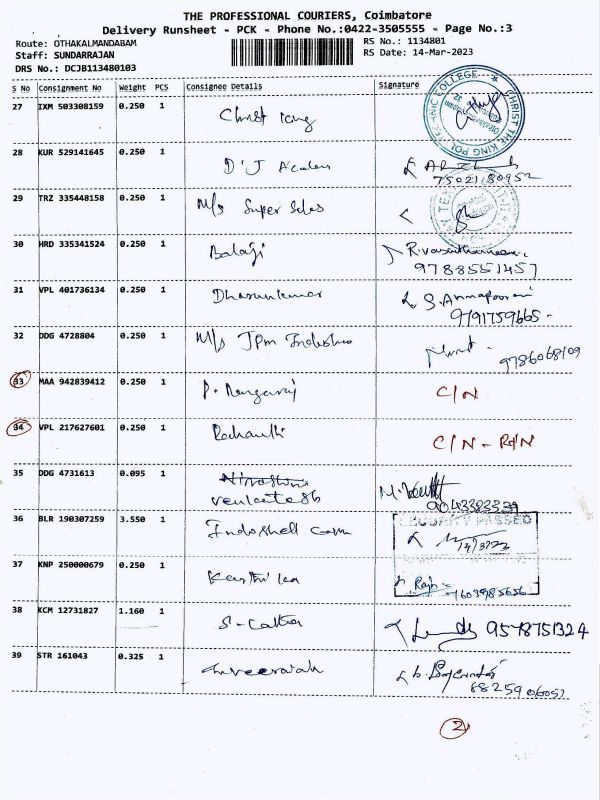 THE PROFESSIONAL COURIERS, Coimbatore
Delivery Runsheet - PCK - Phone No.:0422-3505555 - Page No.:3
Route: OTHAKALMANDABAM
RS No.: 1134801
Staff: SUNDARRAJAN
RS Date: 14-Mar-2023
DRS No.: DCJB113480103
S No Consignment No Weight PCS Consignee Details Signature
27 IXM 503308159 0.250 1 Christ King
CHRIST THE KING POL NIC COLLEGE
28 KUR 529141645 0.250 1 D'J
7502180952
29 TRZ 335448158 0.250 1 M/s Super Sales
30 HRD 335341524 0.250 1 Balaji
9788551457
31 VPL 401736134 0.250 1 Dhasunkumar S. Annapoorani
9791759665-
32 DDG 4728804 0.250 1 M/s JPM
9786068109
33 MAA 942839412 0.250 1 P. Rangaraj C/N
34 VPL 217627601 0.250 1 C/N - R/N
35 DDG 4731613 0.095 1
9043383339
36 BLR 190307259 3.550 1 Indoshell
SECURITY PASSED
37 KNP 250000679 0.250 1 Karthika Raja
38 KCM 12731827 1.160 1 9578751324
39 STR 161043 0.325 1
2